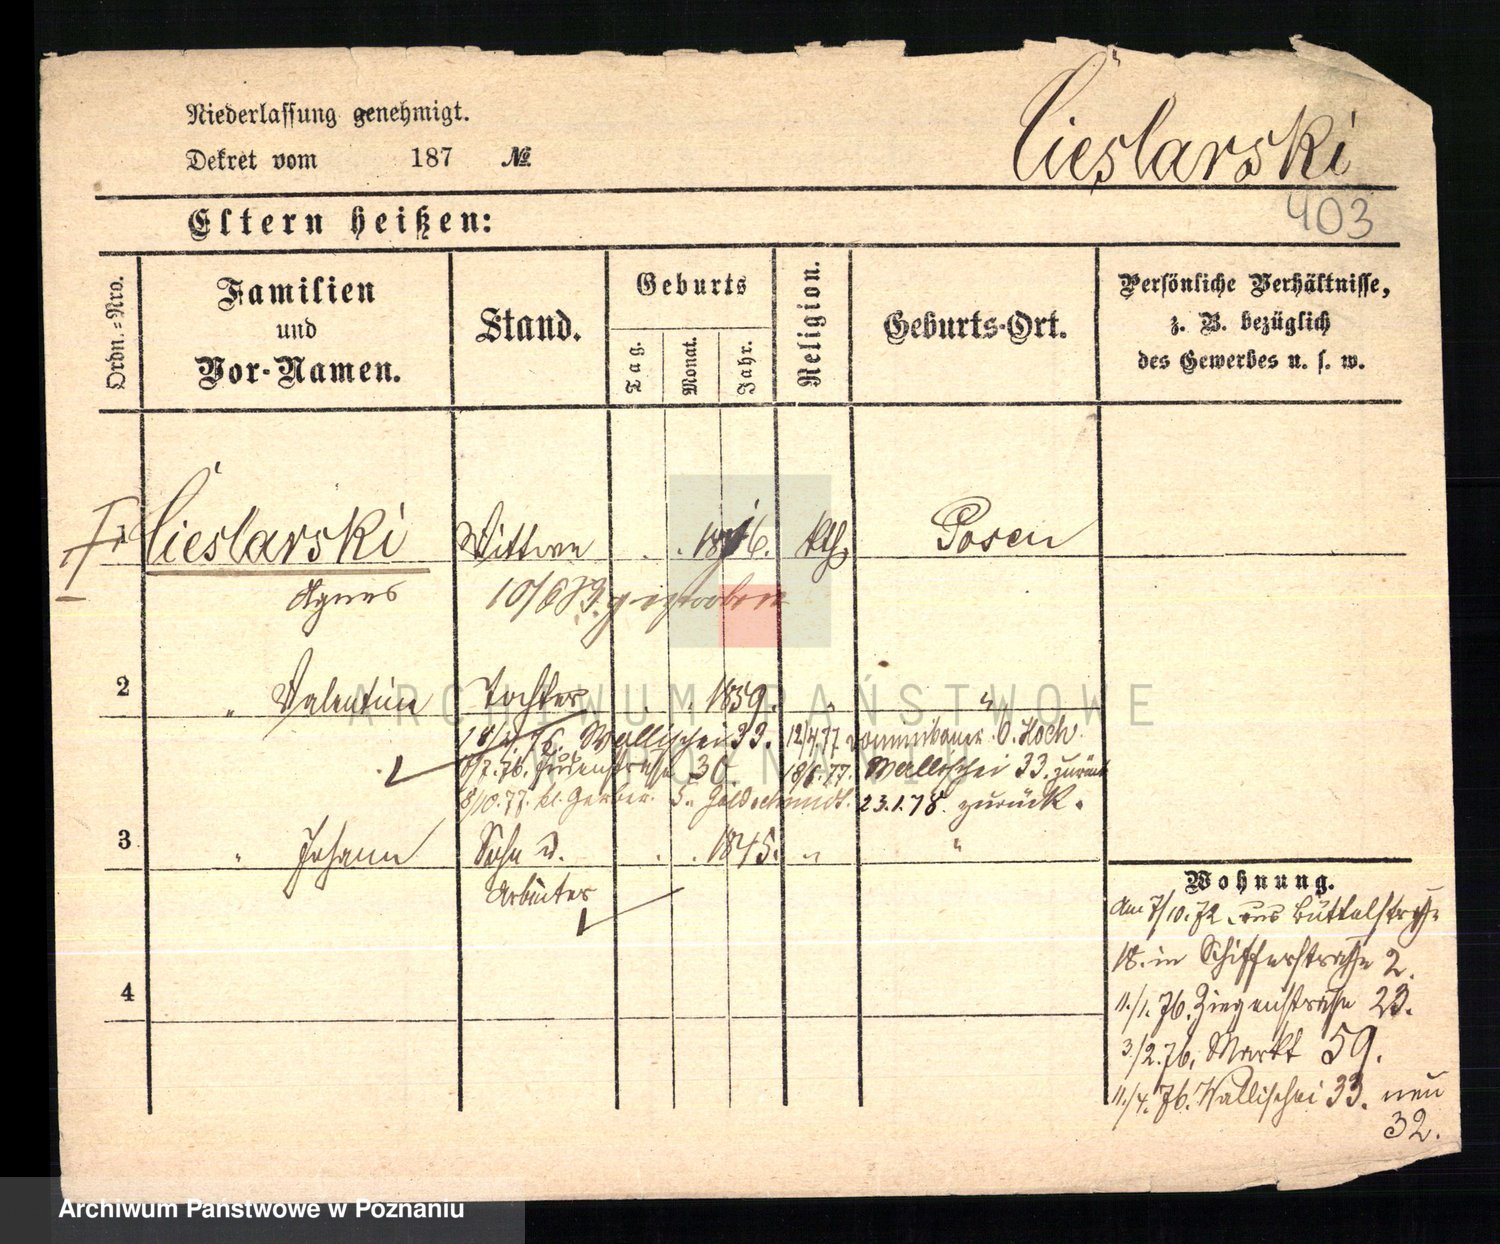 Niederlassung genehmigt.
Cieslarski
Dekret vom 187 №
403
Eltern heißen:
Ordn.=Nro.
Familien
und
Vor-Namen.
Stand.
Geburts
Tag.
Monat.
Jahr.
Religion.
Geburts-Ort.
Persönliche Verhältnisse,
z. B. bezüglich
des Gewerbes u. s. w.
1 Cieslarski Wittwe . . kth. Posen
Agnes gestorben
2 " Valentine Tochter . . 1859. " "
Wallischei 33. 12/4.77 O. Koch.
8/7.76. Judenstraße 30. 18/6.77. Wallischei 33. zurück
8/10.77. kl. Gerber. 5. Goldschmidt. 23.1.78. zurück.
3 " Johann Sohn u. . . 1845. " "
Arbeiter
4
Wohnung.
Am 7/10.72 aus Büttelstraße
18. in Schifferstraße 2.
11./1.76. Ziegenstraße 23.
3./2.76. Markt 59.
11./4.76. Wallischei 33. neu
32.
ARCHIWUM PAŃSTWOWE
W POZNANIU
Archiwum Państwowe w Poznaniu